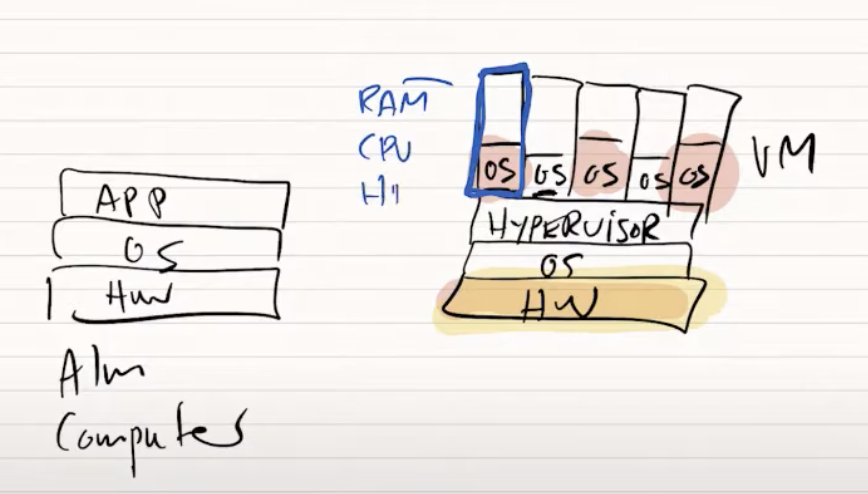 APP
OS
HW
Alm
Computer
RAM
CPU
OS OS OS OS OS
VM
HYPERVISOR
OS
HW